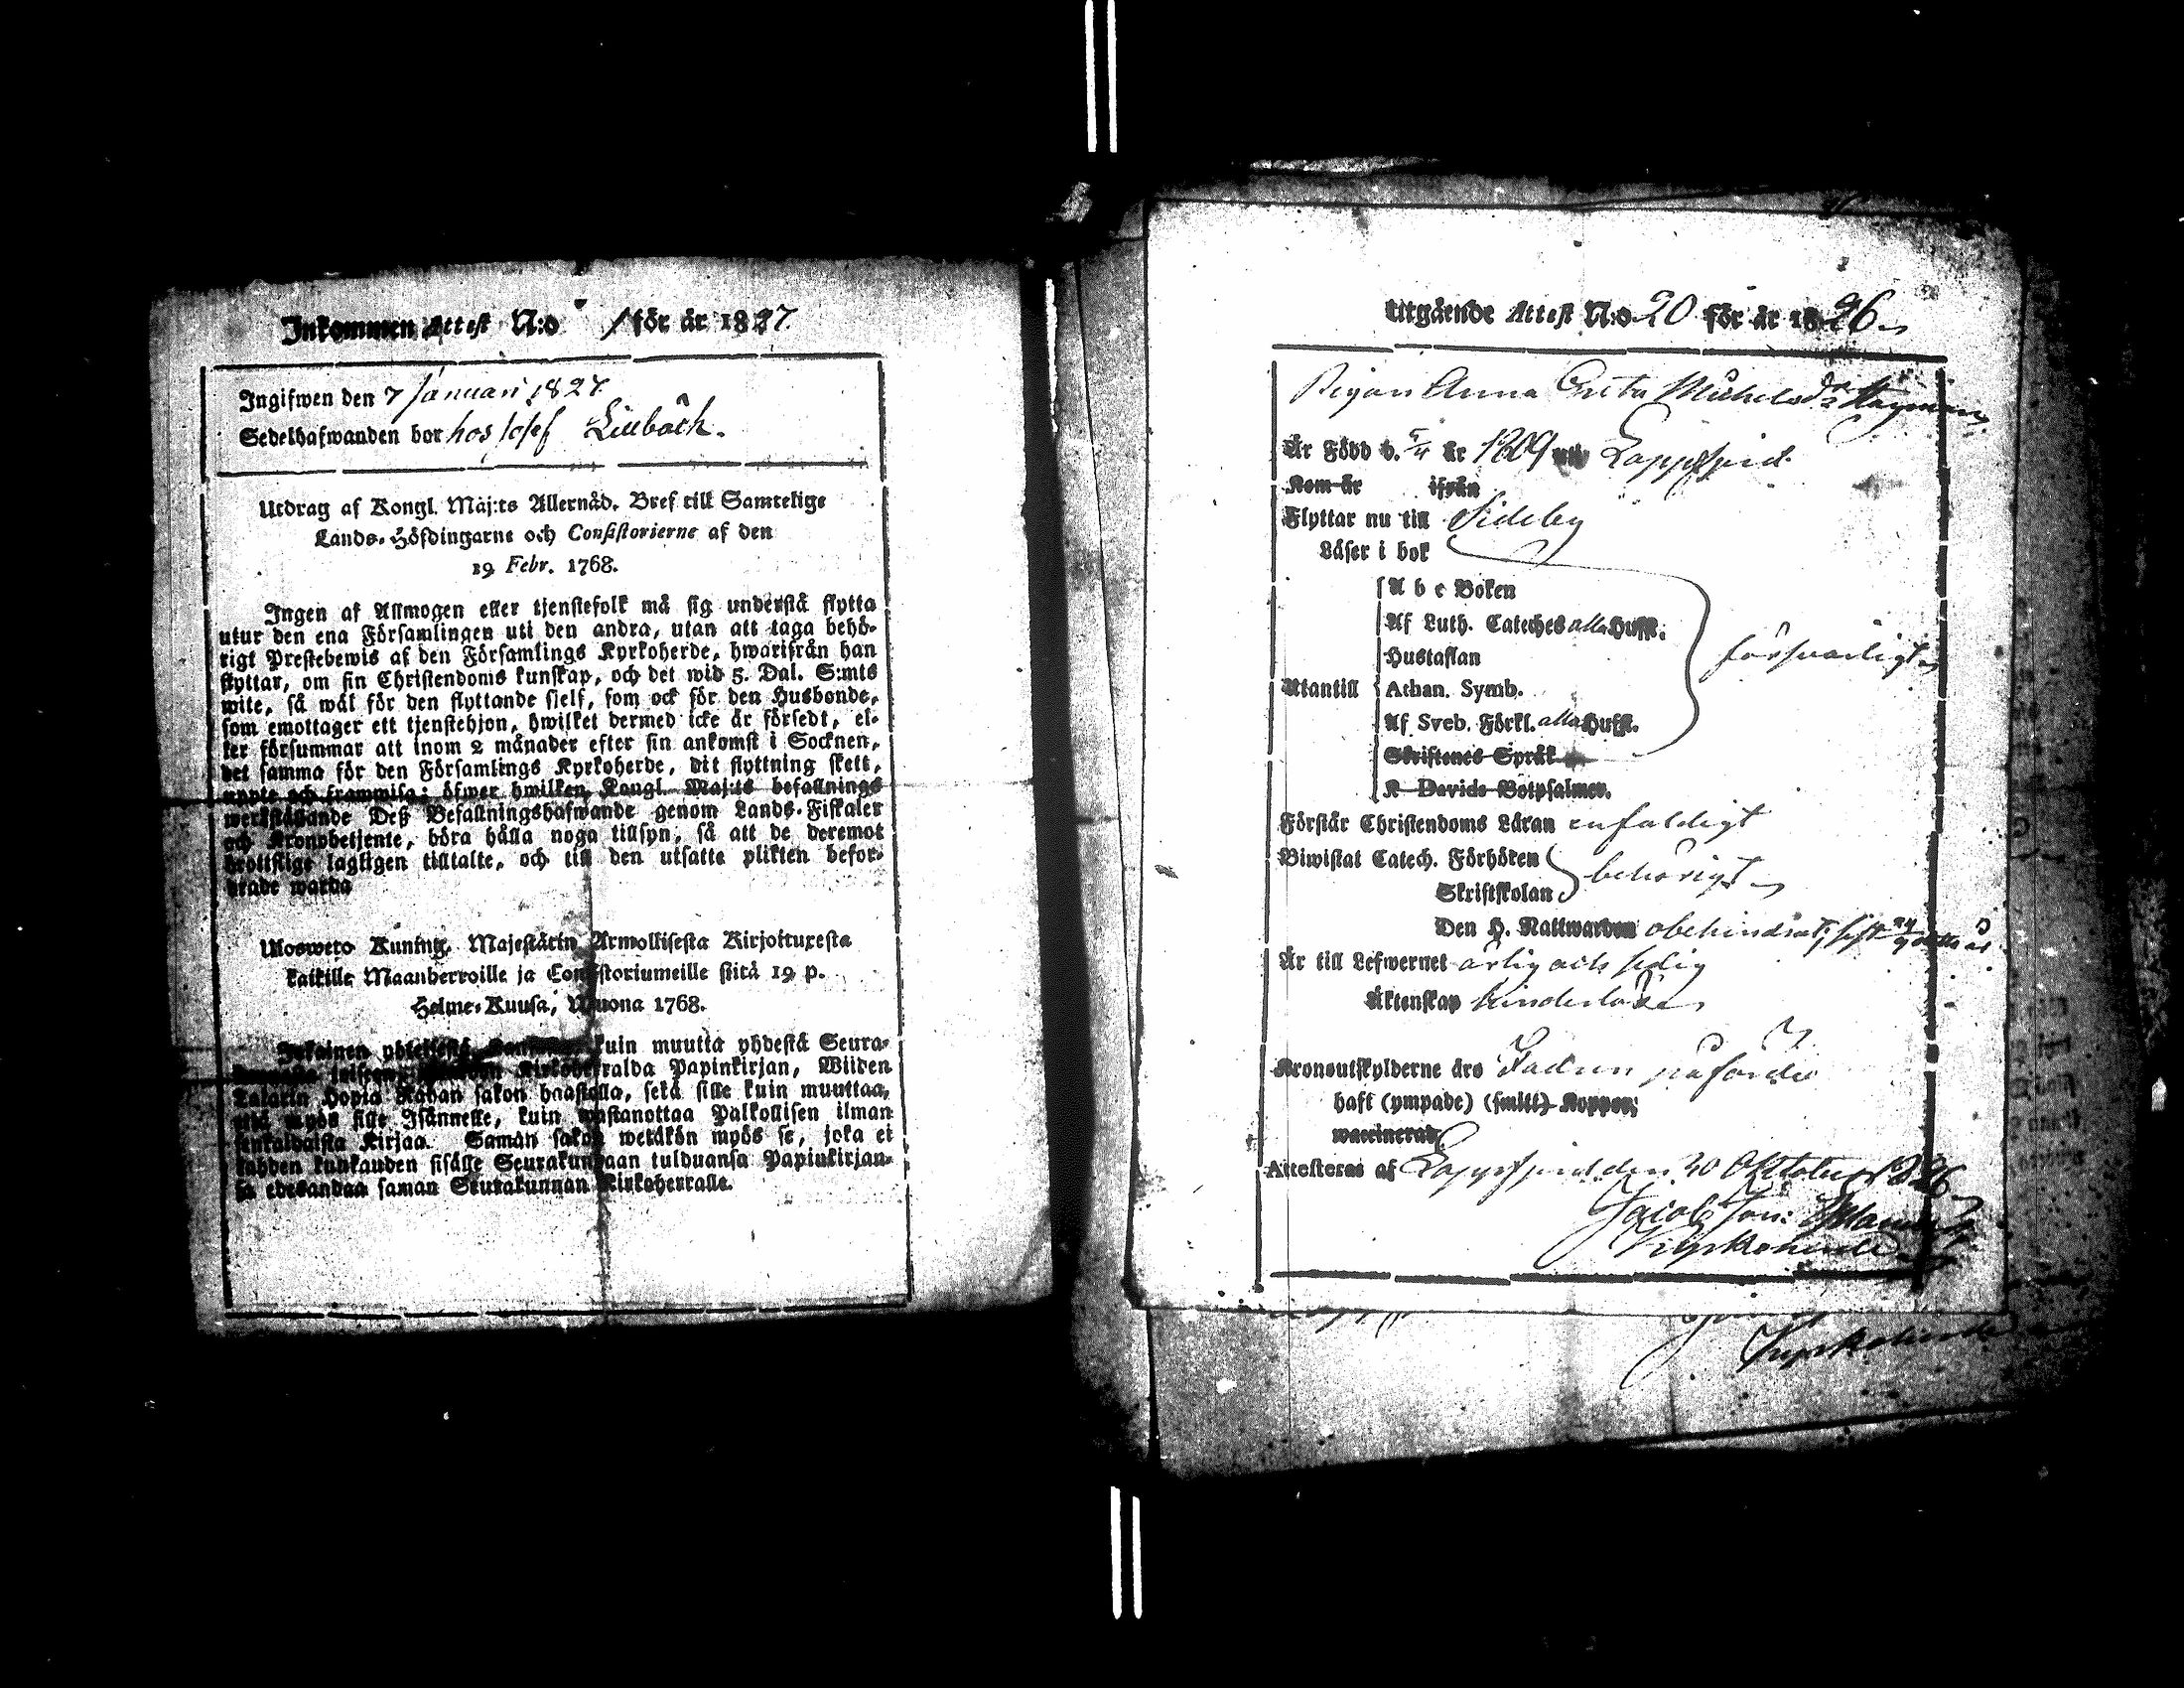 Inkommen Attest N:o 1 för år 1827
Ingifwen den 7 Januari 1827
Sedelhafwanden bor hos Josef Lillbäck.
Utdrag af Kongl. Maj:ts Allernåd. Bref till Samtelige
Lands-Höfdingarne och Consistorierne af den
19 Febr. 1768.
Ingen af Allmogen eller tjenstefolk må sig understå flytta
utur den ena Församlingen uti den andra, utan att taga behö-
rigt Prestebewis af den Församlings Kyrkoherde, hwarifrån han
flyttar, om sin Christendoms kunskap, och det wid 5. Dal. S:mts
wite, så wäl för den flyttande sielf, som ock för den Husbonde,
som emottager ett tjenstehjon, hwilket dermed icke är försedt, el-
ler försummar att inom 2 månader efter sin ankomst i Socknen,
det samma för den Församlings Kyrkoherde, dit flyttning skett,
uppte och framwisa; öfwer hwilken Kongl. Maj:ts befallnings
werkställande Deß Befallningshafwande genom Lands-Fiskaler
och Kronobetjente, böra hålla noga tillsyn, så att de deremot
brottslige lagligen tilltalte, och till den utsatte plikten befor-
drade warda
Ulosweto Kuning. Majestätin Armollisesta Kirjoituxesta
kaikille Maanherroille ja Consistoriumeille siitä 19 p.
Helme-Kuusa, Wuona 1768.
Jokainen yhteisestä kuin muutta yhdestä Seura-
Kirkoherralda Papinkirjan, Wiiden
Talarin Hopia Rahan sakon haastolla, sekä sille kuin muuttaa,
että myös sille Isännelle, kuin wastanottaa Palkollisen ilman
senkaldaista Kirjaa. Saman sakon wetäkön myös se, joka ei
kahden kuukauden sisälle Seurakundaan tulduansa Papinkirjan-
sa edesandaa saman Seurakunnan Kirkoherralle.
Utgående Attest N:o 20 för år 1826
Pigan Anna Greta Michelsdr
Är Född d. 5/4 år 1809 uti Lappfjerd
Kom år ifrån
Flyttar nu till Sideby
Läser i bok
A b c Boken
Af Luth. Cateches alla Hufst.
Hustaflan
försvarligt
Utantill Athan. Symb.
Af Sveb. Förkl. alla Hufst.
Skriftenes Språk
K Davids Botpsalmer.
Förstår Christendoms Läran enfaldigt
Biwistat Catech. Förhören
behörigt
Skriftskolan
Den H. Nattwarden obehindrat, sist 24/9 detta år
Är till Lefwernet ärlig och sedig
Äktenskap hinderlös
Kronoutskylderne äro Fadren påförde
haft (ympade) (smitt) Koppor,
waccinerad
Attesteras af Lappfjerd den 30 Oktober 1826
Jacob Jon.
Kyrkoherde
Kyrkoherde